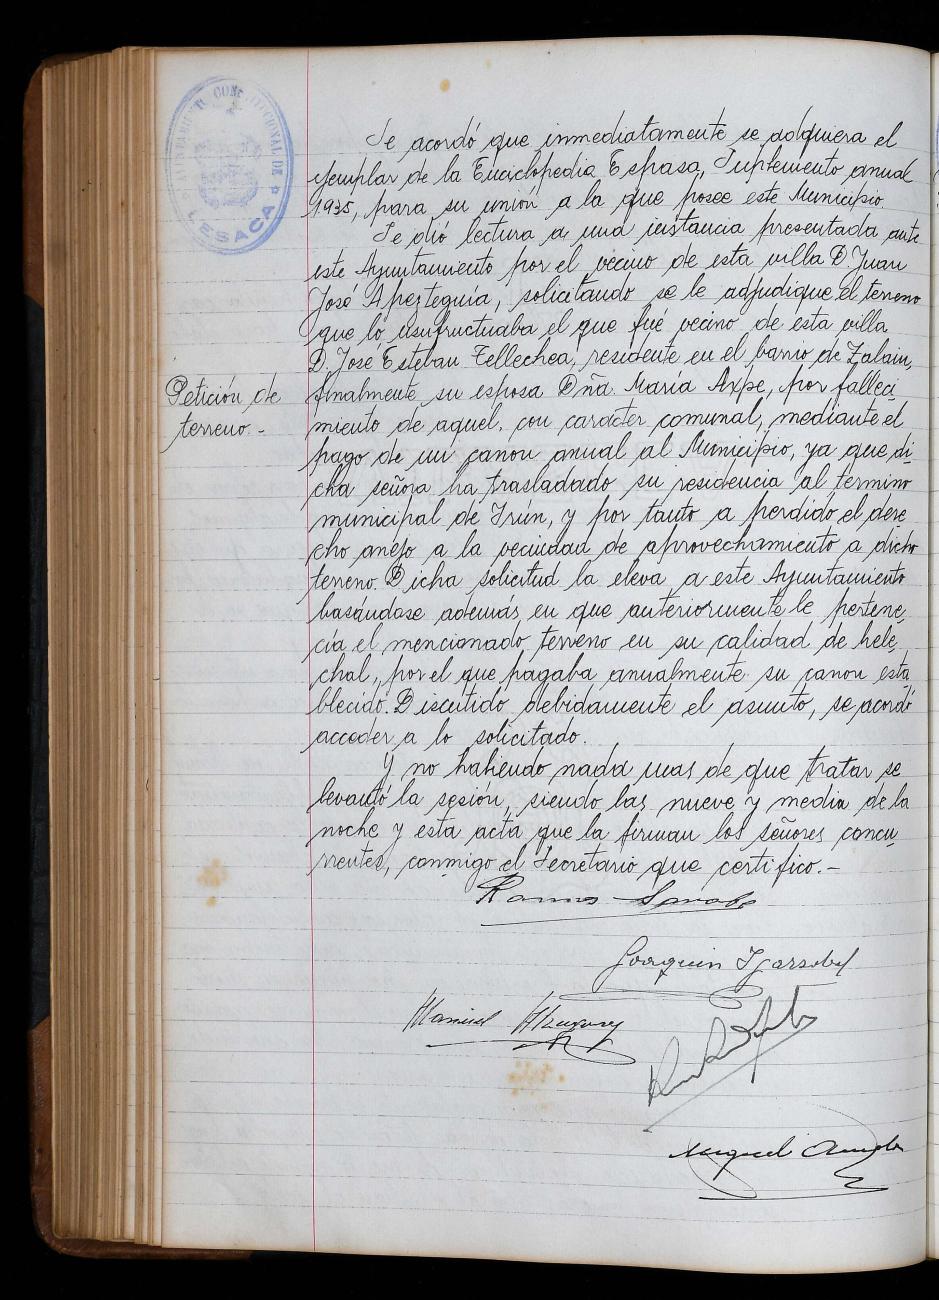 AYUNTAMIENTO CONSTITUCIONAL DE
LESACA
Se acordó que inmediatamente se adquiera el
ejemplar de la Enciclopedia Espasa, Suplemento anual
1935, para su unión a la que posee este Municipio
Se dió lectura a una instancia presentada ante
este Ayuntamiento por el vecino de esta villa D Juan
José Apezteguía, solicitando se le adjudique el terreno
que lo usufructuaba el que fué vecino de esta villa
D. José Esteban Tellechea, residente en el barrio de Zalain,
Petición de
terreno.-
finalmente su esposa Dña María Axpe, por falleci
miento de aquel, con carácter comunal, mediante el
pago de un canon anual al Municipio, ya que di-
cha señora ha trasladado su residencia al termino
municipal de Irún, y por tanto a perdido el dere
cho anejo a la vecindad de aprovechamiento a dicho
terreno. Dicha solicitud la eleva a este Ayuntamiento
basándose además, en que anteriormente le pertene-
cía el mencionado terreno en su calidad de hele-
chal, por el que pagaba anualmente su canon esta
blecido. Discutido debidamente el asunto, se acordó
acceder a lo solicitado.
Y no habiendo nada mas de que tratar se
levantó la sesión, siendo las nueve y media de la
noche y esta acta que la firman los señores concu-
rrentes, conmigo el Secretario que certifico.-
Ramos
Joaquin Igarzabal
Manuel
Miguel